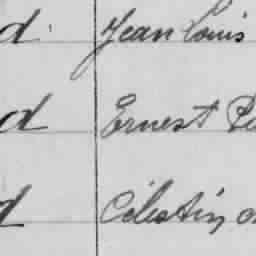 d Jean Louis
d Ernest
d Célestin